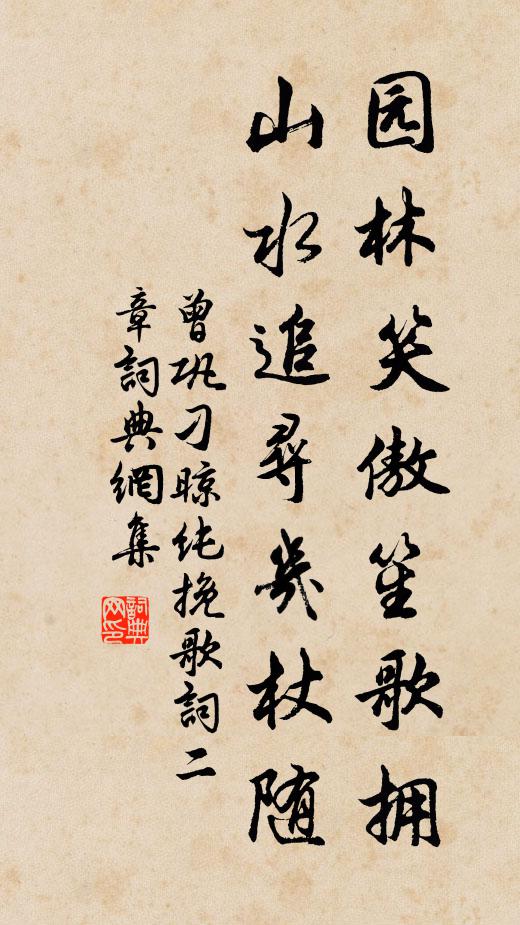 园林笑傲笙歌拥
山水追尋几杖随
曾巩刁景纯挽歌詞二
章詞典網集
詞典网印